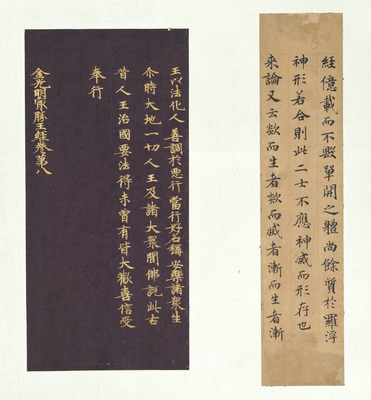 經億載而不毀單開之體尚餘質於羅浮
神形若合則此二士不應神滅而形存也
來論又云歘而生者歘而滅者漸而生者漸
王以法化人善調於惡行當行好名稱安樂諸眾生
尒時大地一切人王及諸大衆聞佛說此古
昔人王治國要法得未曾有皆大歡喜信受
奉行
金光明最勝王經卷第八